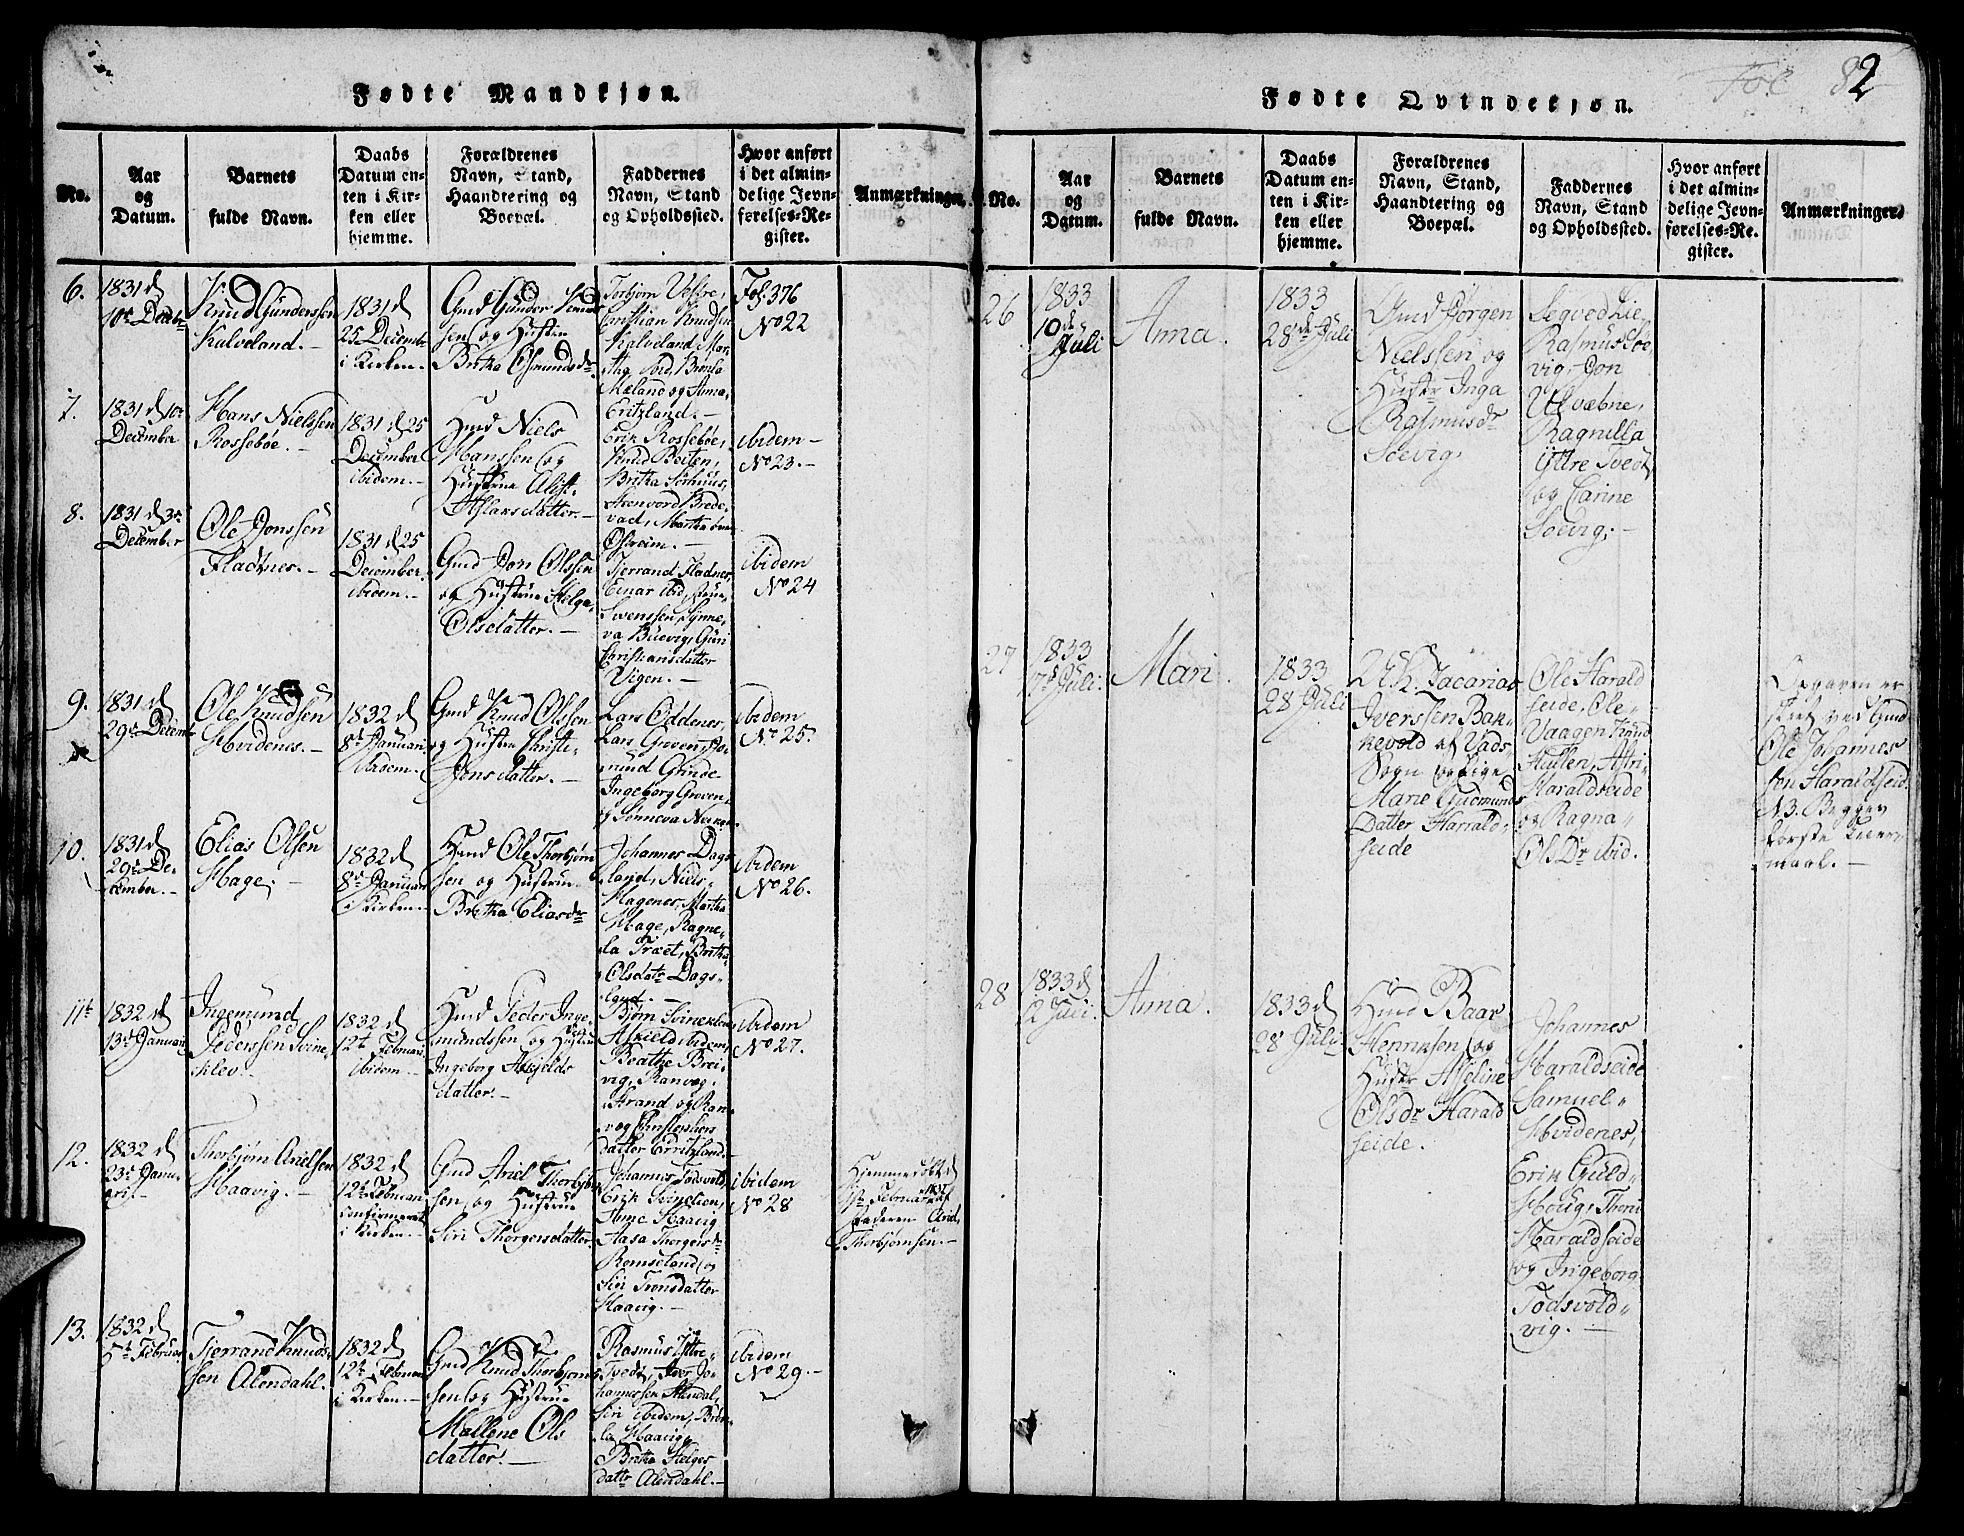 Fødte Mandkjøn.
No.
Aar
og
Datum.
Barnets
fulde Navn.
Daabs
Datum en-
ten i Kir-
ken eller
hjemme.
Forældrenes
Navn, Stand,
Haandtering og
Boepæl.
Faddernes
Navn, Stand
og Opholdssted.
Hvor anført
i det almin-
delige Jevn-
førelses-Re-
gister.
Anmærkninger.
6.
1831 d
10de Decbr
Knud Gunderssen
Kalveland.-
1831 d
25 Decembr
i Kirken.-
Gmd Gunder Knud
sen og Hustru
Britha Osmundsdr
Torbjørn Vestre,
Christian Knudsen
Kalveland, Mar-
tha ibid,
Mæland og Anna
Eritzland.-
Fol. 376
No 22
7.
1831 d 10de
December
Hans Nielssen
Rossebøe.-
1831 d 25
December
ibidem.-
Hmd Niels
Hanssen og
Hustrue
Aslaksdatter.-
Erik Rossebøe,
Knud Beiten,
Britha
Brede-
vad, Martha
ibidem-
No 23.-
8.
1831 d 3de
December
Ole Jonssen
Fladnes.-
1831 d 25
December.
ibidem.-
Gmd Jon Olssen
og Hustrue Helga
Olsdatter.-
Tjerrand Fladnes,
Einar ibid,
Swenssen, Synne-
va Buevig, Guri
Christiansdatter
Vigen.-
ibidem
No 24
9.
1831 d
29de Decembr
Ole Knudsen
Hvidenes.-
1832 d
8de Januari
ibidem.-
Gmd Knud Olssen
og Hustru Christi
Jonsdatter.-
Lars Oddenes,
Lars Groven,
mund Grinde
Ingeborg Groven,
og Sønneva
ibidem
No 25.
10.
1831 d
29de De-
cember.-
Elias Olsen
Hage.-
1832 d
8de Januari
i Kirken.-
Hmd Ole Thorbjørn
sen og Hustrue
Britha Eliasdr
Johannes Dags-
land, Niels
Hagenes, Martha
Hage, Ragne-
la Træet, Britha
Olsdatr Dags-
land.-
ibidem
No 26.
11te
1832 d
13de Januari
Ingemund
Pederssen Svine-
klev.-
1832 d
12te Februari
ibidem.-
Hmd Peder Inge-
mundssen og Hustru
Ingeborg Askields
datter.-
Bjørn Svineklev
Askield ibidem,
Beathe Brei-
vig, Ranveg
Strand og Ran-
veg Christophers
datter Erritzland.-
ibidem
No 27.
12.
1832 d
23de Janu-
ari.-
Thorbjørn Arielsen
Haavig.-
1832 d
12te Februari
confirmeret
i Kirken.-
Gmd Ariel Thorbjørn
sen og Hustrue
Siri Thorgersdatter.
Johannes Todsvold,
Erik Svineklev,
Anne Haavig
Aasa Thorgersdr
Romseland og
Siri Tronsdatter
Haavig.-
ibidem
No 28
Hjemmedøbt d
Februari af
Faderen Ariel
Thorbjørnsen.-
13.
1832 d
5te Februar
Tjerrand Knud-
sen Alendahl.
1832 d
12te Februar
i Kirken.-
Gmd Knud Thorbjørn
sen og Hustrue
Mallene Ols
datter.-
Rasmus Ytre
Tvedt, Iver Jo-
hannessen Alendal,
Siri ibidem,
Haavig,
Britha Helges
datter Alendahl.-
ibidem
No 29.-
Fødte Qvindekjøn.
Fol 82
No.
Aar
og
Datum.
Barnets
fulde Navn.
Daabs
Datum en-
ten i Kir-
ken eller
hjemme.
Forældrenes
Navn, Stand,
Haandtering og
Boepæl.
Faddernes
Navn, Stand
og Opholdssted.
Hvor anført
i det almin-
delige Jevn-
førelses-Re-
gister.
Anmærkninger.
26
1833
10de
Juli
Anna.
1833
28de Juli
Gmd Jørgen
Nielssen og
Hustr Inga
Rasmusdr
Soevig.
Segved Lie
Rasmus Soe-
vig, Jon
Ulvæbne,
Ragnilla
Yttre Tvedt
og Carine
Soevig.-
27
1833
7de Juli.
Mari.
1833
28 Juli
Zacarias
Iverssen Bak-
kevold af Vads
Sogn og Pige
Marie Gudmunds
Datter Harrald-
seide
Ole Harald
seide, Ole
Vaagen, Knud
Astri
Haraldseide
og Ragna
OlsDr ibid.
Opgaven er
skeet ved Gmd
Ole Johannes
sen Haraldseid.
N3. Begges
første Leier-
maal.-
28
1833 d
12 Juli
Anna.
1833 d
28 July
Hmd Baar
Henriksen og
Hustr Asseline
Olsdr Harald
seide.
Johannes
Haraldseide
Samuel
Hvidenes,
Erik Guld-
Houg, Thoni
Haraldseide
og Ingeborg
Todsvold-
vig.-